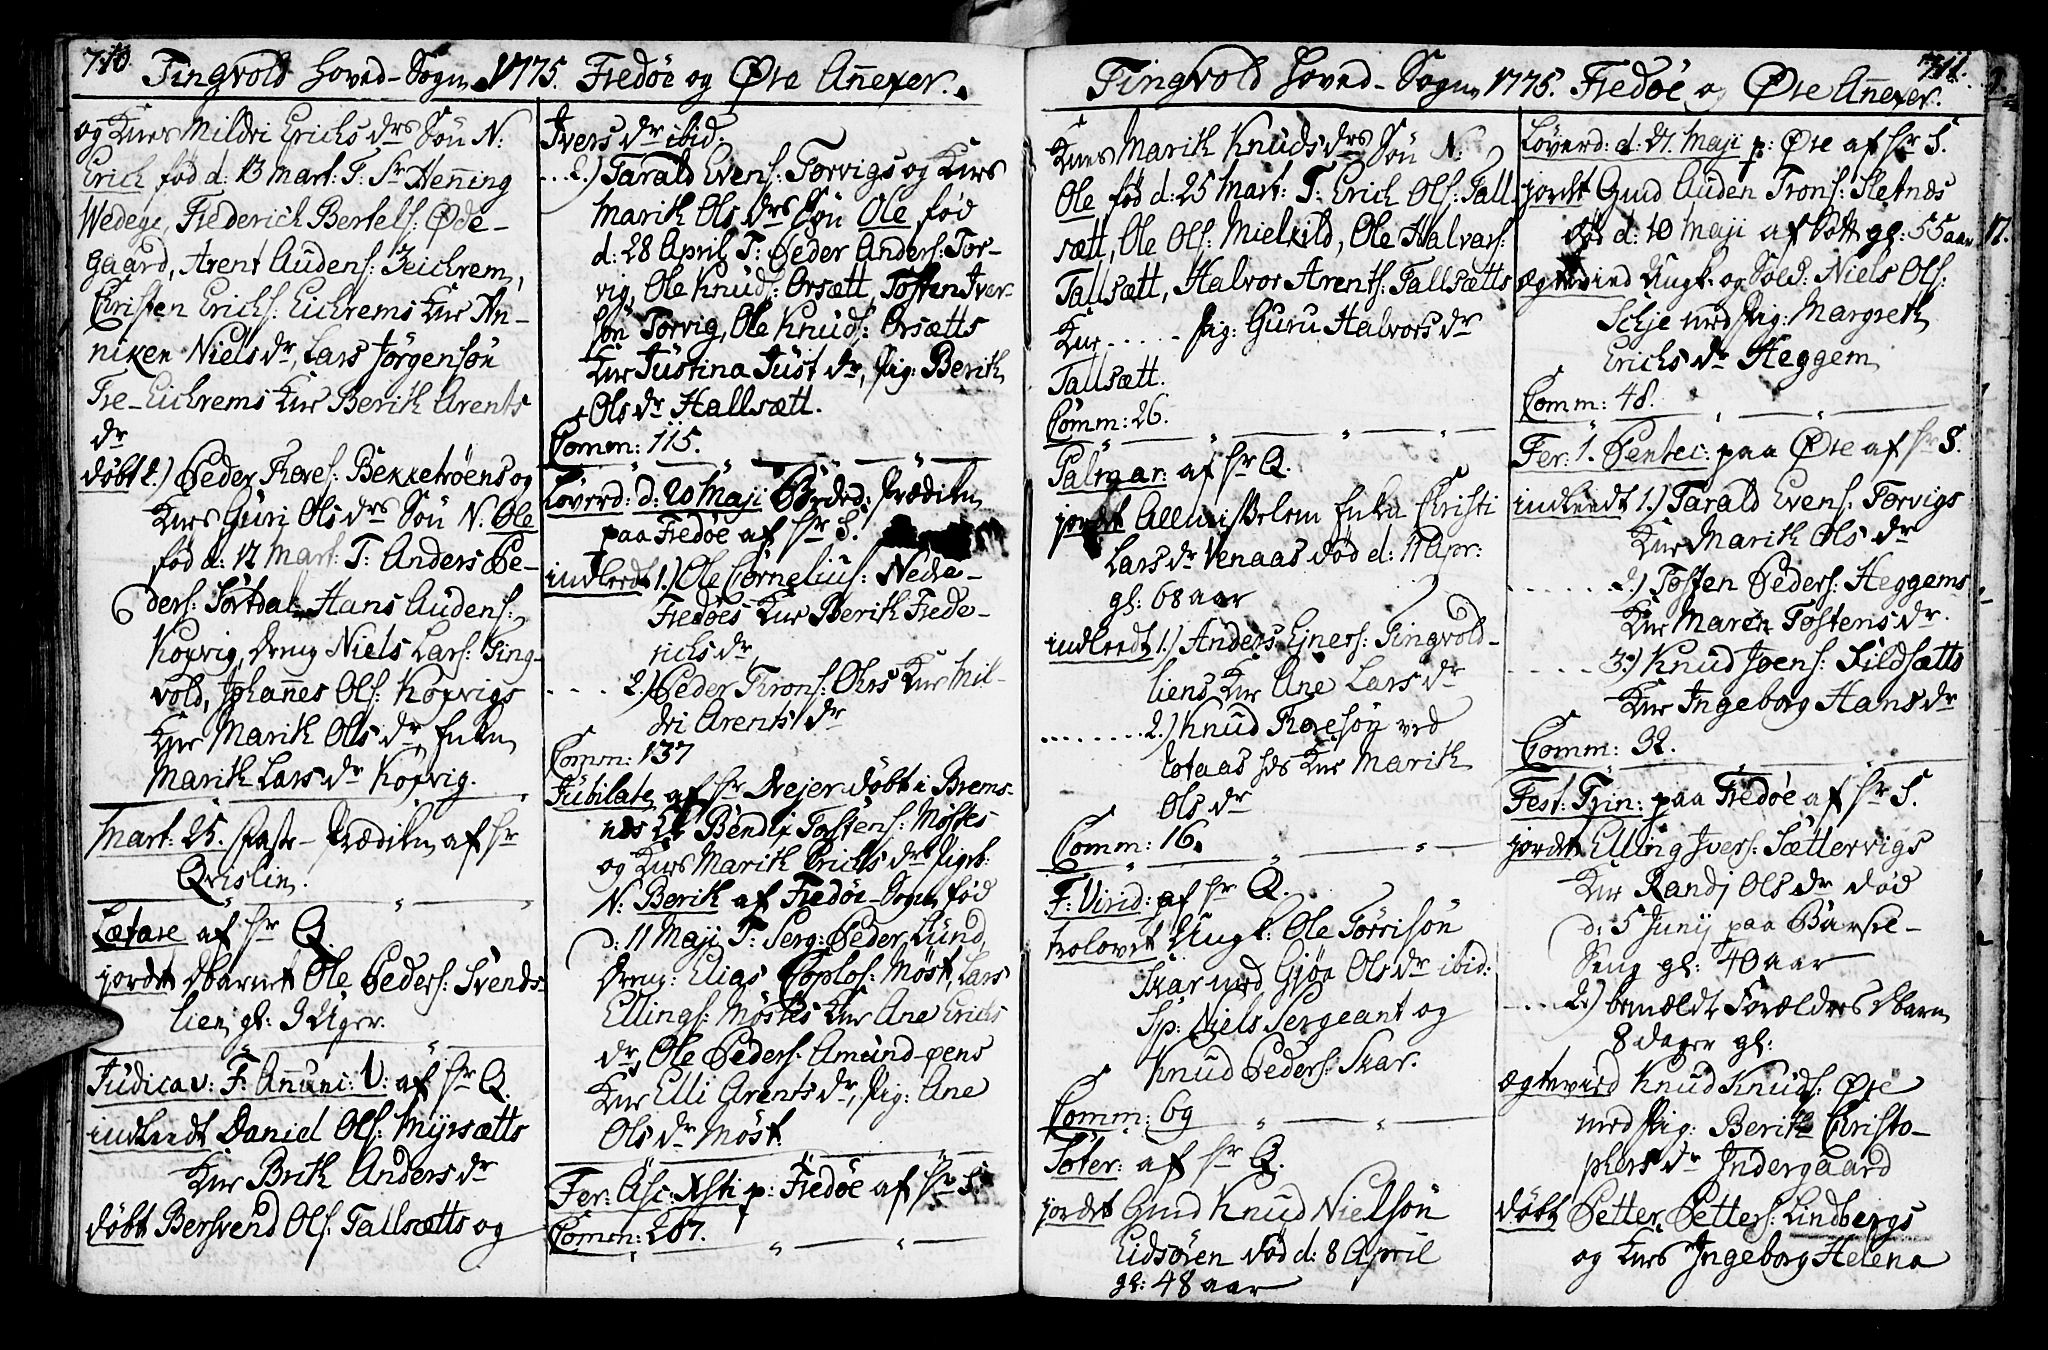 710. Tingvold Hoved-Sogn 1775. Fredøe og Øre Añexer.
og Kones Mildri Erichs drs Søn N:
Erich fød d: 13 Mart: T: Sr Heñing
Wedege, Frederich Bertels: Øde-
gaard, Arent Audens: Eichrem,
Christen Erichs: Eichrems Kone An-
niken Niels dr, Lars Jörgensön
Fre-Eichrems Kone Berith Arents
dr
døbt 2.) Peder Tores: Bekketrøens og
Kones Guri Ols drs Søn N. Ole
fød d: 12 Mart: T: Anders Pe-
ders: Tortdal, Hans Audens:
Kopvig, Dreng Niels Lars: Ting-
vold, Johañes Ols: Kopvigs
Kone Marith Ols dr, Enken
Marith Lars dr Kopvig.
Mart: 25. Faste-Prædiken af Hr
Qvislin.
Lætare af Hr Q.
jordet Dbarnet Ole Peders: Svends-
lien, gl: 9 Uger.
Judica v: F: Añunc: V: af Hr Q.
indleedt Daniel Ols: Myrsætts
Kone Brith Anders dr
døbt Bersvend Ols: Tallsætts og
Ivers dr ibid:
2.) Tarald Evens: Torvigs og Kones
Marith Ols drs Søn Ole fød
d: 28 April T: Peder Anders: Tor-
vig, Ole Knuds: Orsætt, Tosten Iver-
søn Torvig, Ole Knuds: Orsætts
Kone Justina Just dr, Pig: Berith
Ols dr Hallsætt.
Comm: 115.
Løverd: d: 20 Maji Præd: Prædiken
paa Fredøe af Hr S.
indleedt 1.) Ole Cornelius: Nedre-
Fredøes Kone Berith Frede-
richs dr
2.) Peder Trons: Ohrs Kone Mil-
dri Arents dr
Comm: 137
Jubilate af Hr Drejer døbt i Brems-
næs K: Bendix Tostens: Møstes
og Kones Marith Erichs drs Pigeb:
N: Berith af Fredøe-Sogn, fød
d: 11 Maji T: Serg: Peder Lund,
Dreng: Elias Møst, Lars
Ellings: Møstes Kone Ane Erichs
dr, Ole Peders: Amund-øens
Kone Elli Arents dr, Pig: Ane
Ols dr Møst.
Fer: Asc: Xsti p: Fredøe af Hr S.
Comm: 207.
Tingvold Hoved-Sogn 1775. Fredøe og Øre Añexer. 711.
Kones Marith Knuds drs Søn N:
Ole fød d: 25 Mart: T: Erich Ols: Tall-
sætt, Ole Ols: Mielkild, Ole Halvars:
Tallsætt, Halvor Arents: Tallsætts
Kone ..... Pig: Guru Halvors dr
Tallsætt.
Comm: 26.
Palmar: af Hr Q.
jordet Allmisselem Enken Christi
Lars dr Venaas død d: 11 Apr:
gl: 68 aar
indleedt 1.) Anders Ejners: Tingvold-
liens Kone Ane Lars dr
2.) Knud Toresøn ved
Kone Marith
Ols dr
Comm: 16.
F: Virid: af Hr Q.
trolovet Ungk: Ole Torrisøn
Skar med Gjøa Ols dr ibid:
Sp: Niels Sergeant og
Knud Peders: Skar.
Comm: 69
Soter: af Hr Q.
jordet Gmd Knud Nielsøn
Eidsøren død d: 8 April
gl: 48 aar
Løverd: d: 27. Maji p: Øre af Hr S.
jordet Gmd Auden Trons: Sletnæs
død d: 10 Maji af Sott gl: 55 aar
ægtevied Ungk: og Sold: Niels Ols:
Schje med Pig: Margreth
Erichs dr Heggem
Comm: 48.
Fer: 1. Pentec: paa Øre af Hr S.
indleedt 1.) Tarald Evens: Torvigs
Kone Marith Ols dr
2.) Tosten Peders: Heggems
Kone Maren Tostens dr.
3.) Knud Joens: Sildsætts
Kone Ingeborg Hans dr
Comm: 32.
Fest: Trin: paa Fredøe af Hr S.
jordet Elling Ivers: Sættervigs
Kone Randj Ols dr død
d: 5 Junij paa Barsel-
Seng gl: 40 aar
2.) bemældte Forældres Dbarn
8 dager gl:
ægtevied Knud Knuds: Øre
med Pig: Berith Christo-
phers dr Indergaard
døbt Petter Petters: Lindbergs
og Kones Ingeborg Helena
17.